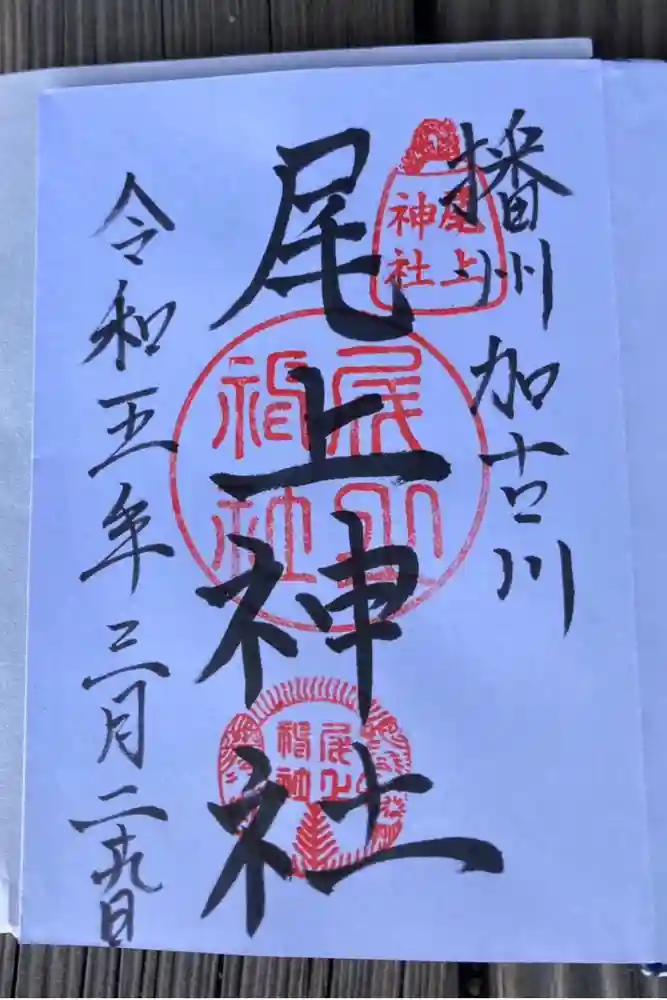 播州加古川
尾上神社
令和五年三月二十九日
尾上
神社
尾上
神社
尾上
神社